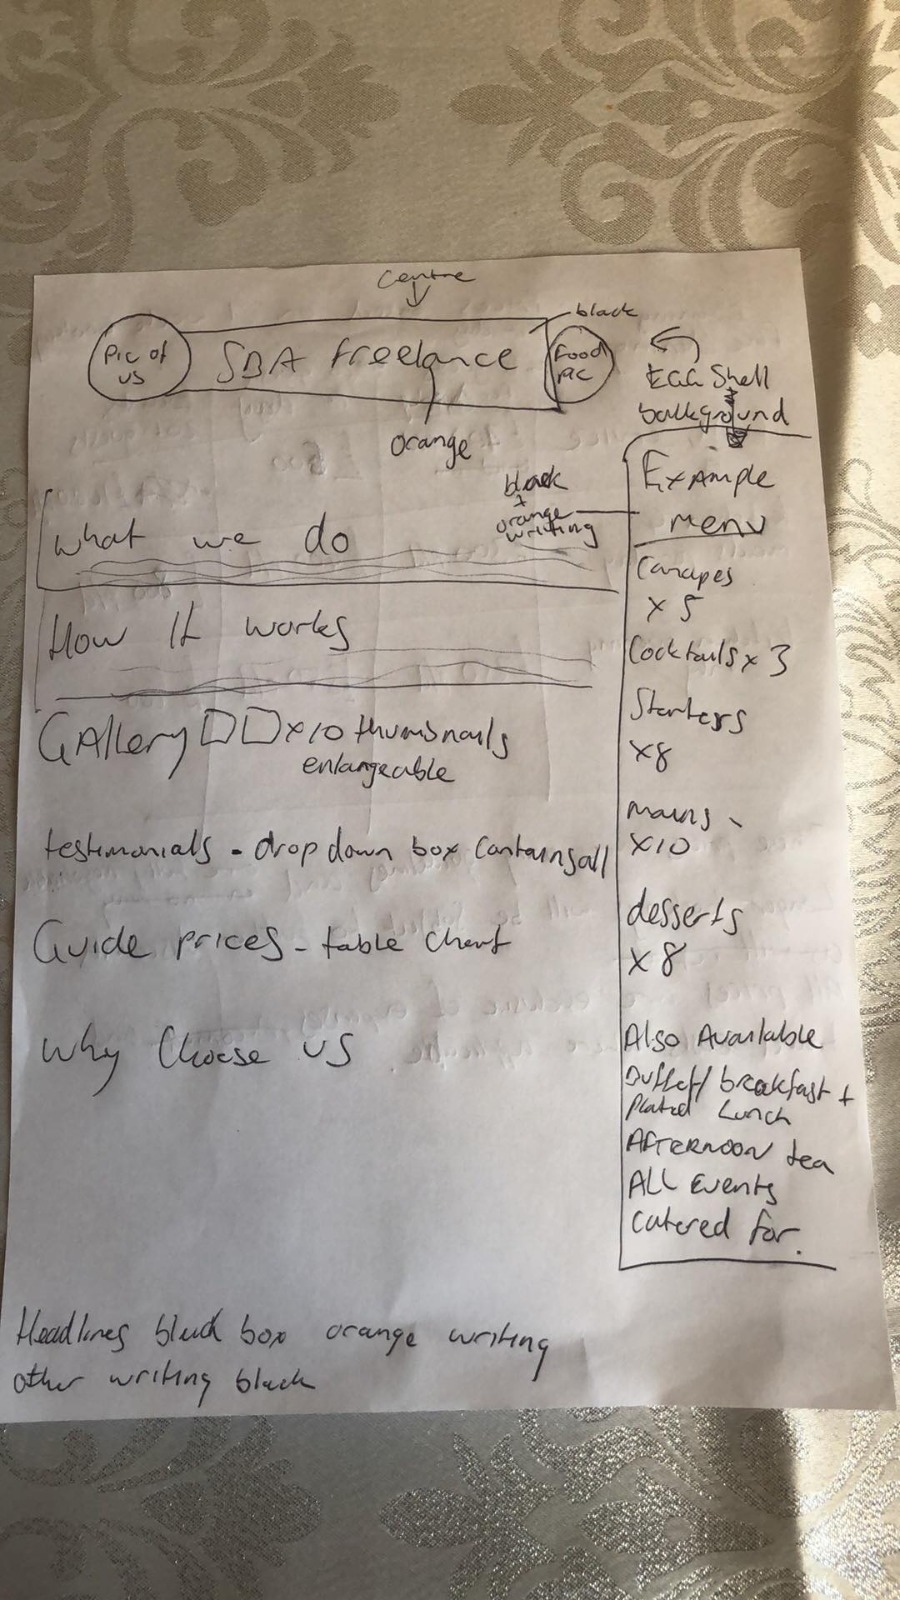 Centre
black
Pic of
us
SBA freelance
Food
pic
orange
EGG Shell
background
black
+
orange
writing
What we do
How It works
GAllery x10 thumbnails
enlargeable
testimonials - drop down box contains all
Guide prices - table chart
Why Choose US
Example
menu
Canapes
x 5
Cocktails x 3
Starters
x8
mains
x10
desserts
x 8
Also Available
Buffet/ breakfast +
Plated Lunch
AFTERNOON tea
ALL Events
Catered for.
Headlines black box orange writing
other writing black